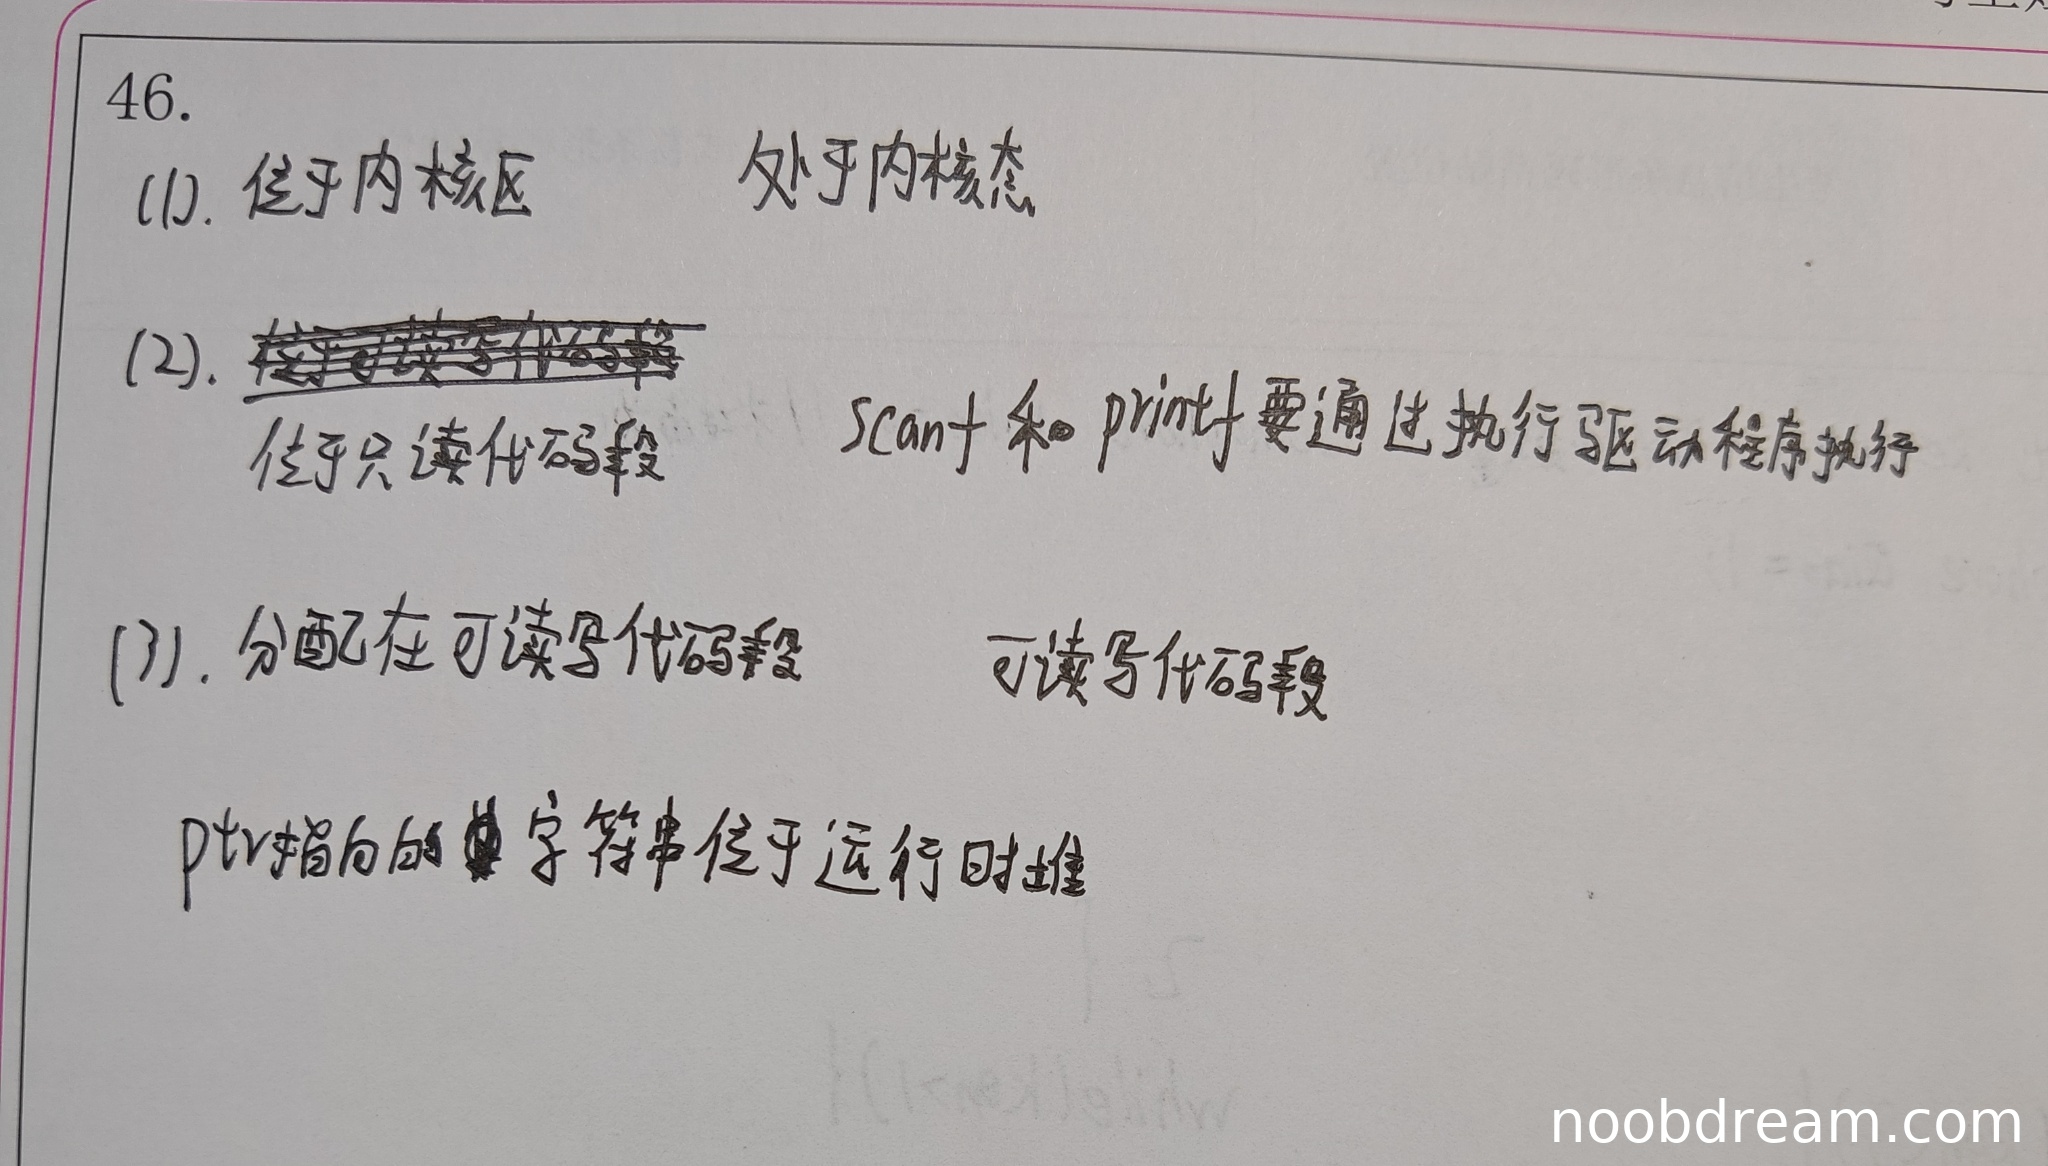 46.
(1). 位于内核区 处于内核态
(2).
位于只读代码段 scanf 和 printf 要通过执行驱动程序执行
(3). 分配在可读写代码段 可读写代码段
ptr指向的字符串位于运行时堆
noobdream.com